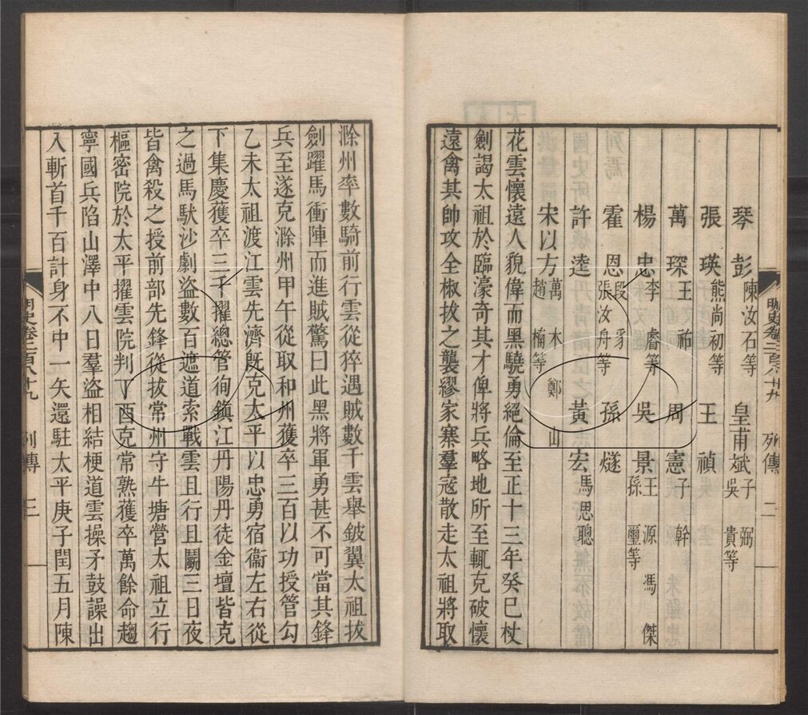 琴彭 陳汝石等 皇甫斌 子弼 吳貴等
張瑛 熊尚初等 王禎
萬琛 王祐 周憲 子幹
楊忠 李睿等 吳景 王源 馮傑 孫璽等
霍恩 段豸 張汝舟等 孫燧
許逵 黃宏 馬思聰
宋以方 萬木 鄭山 趙楠等
花雲懷遠人貌偉而黑驍勇絕倫至正十三年癸巳杖
劍謁太祖於臨濠奇其才俾將兵略地所至輒克破懷
遠禽其帥攻全椒拔之襲繆家寨羣寇散走太祖將取
明史卷二百八十九 列傳 二
滁州率數騎前行雲從猝遇賊數千雲舉鈹翼太祖拔
劍躍馬衝陣而進賊驚曰此黑將軍勇甚不可當其鋒
兵至遂克滁州甲午從取和州獲卒三百以功授管勾
乙未太祖渡江雲先濟既克太平以忠勇宿衞左右從
下集慶獲卒三千擢總管徇鎮江丹陽丹徒金壇皆克
之過馬馱沙劇盜數百遮道索戰雲且行且鬭三日夜
皆禽殺之授前部先鋒從拔常州守牛塘營太祖立行
樞密院於太平擢雲院判丁酉克常熟獲卒萬餘命趨
寧國兵陷山澤中八日羣盜相結梗道雲操矛鼓譟出
入斬首千百計身不中一矢還駐太平庚子閏五月陳
明史卷二百八十九 列傳 三